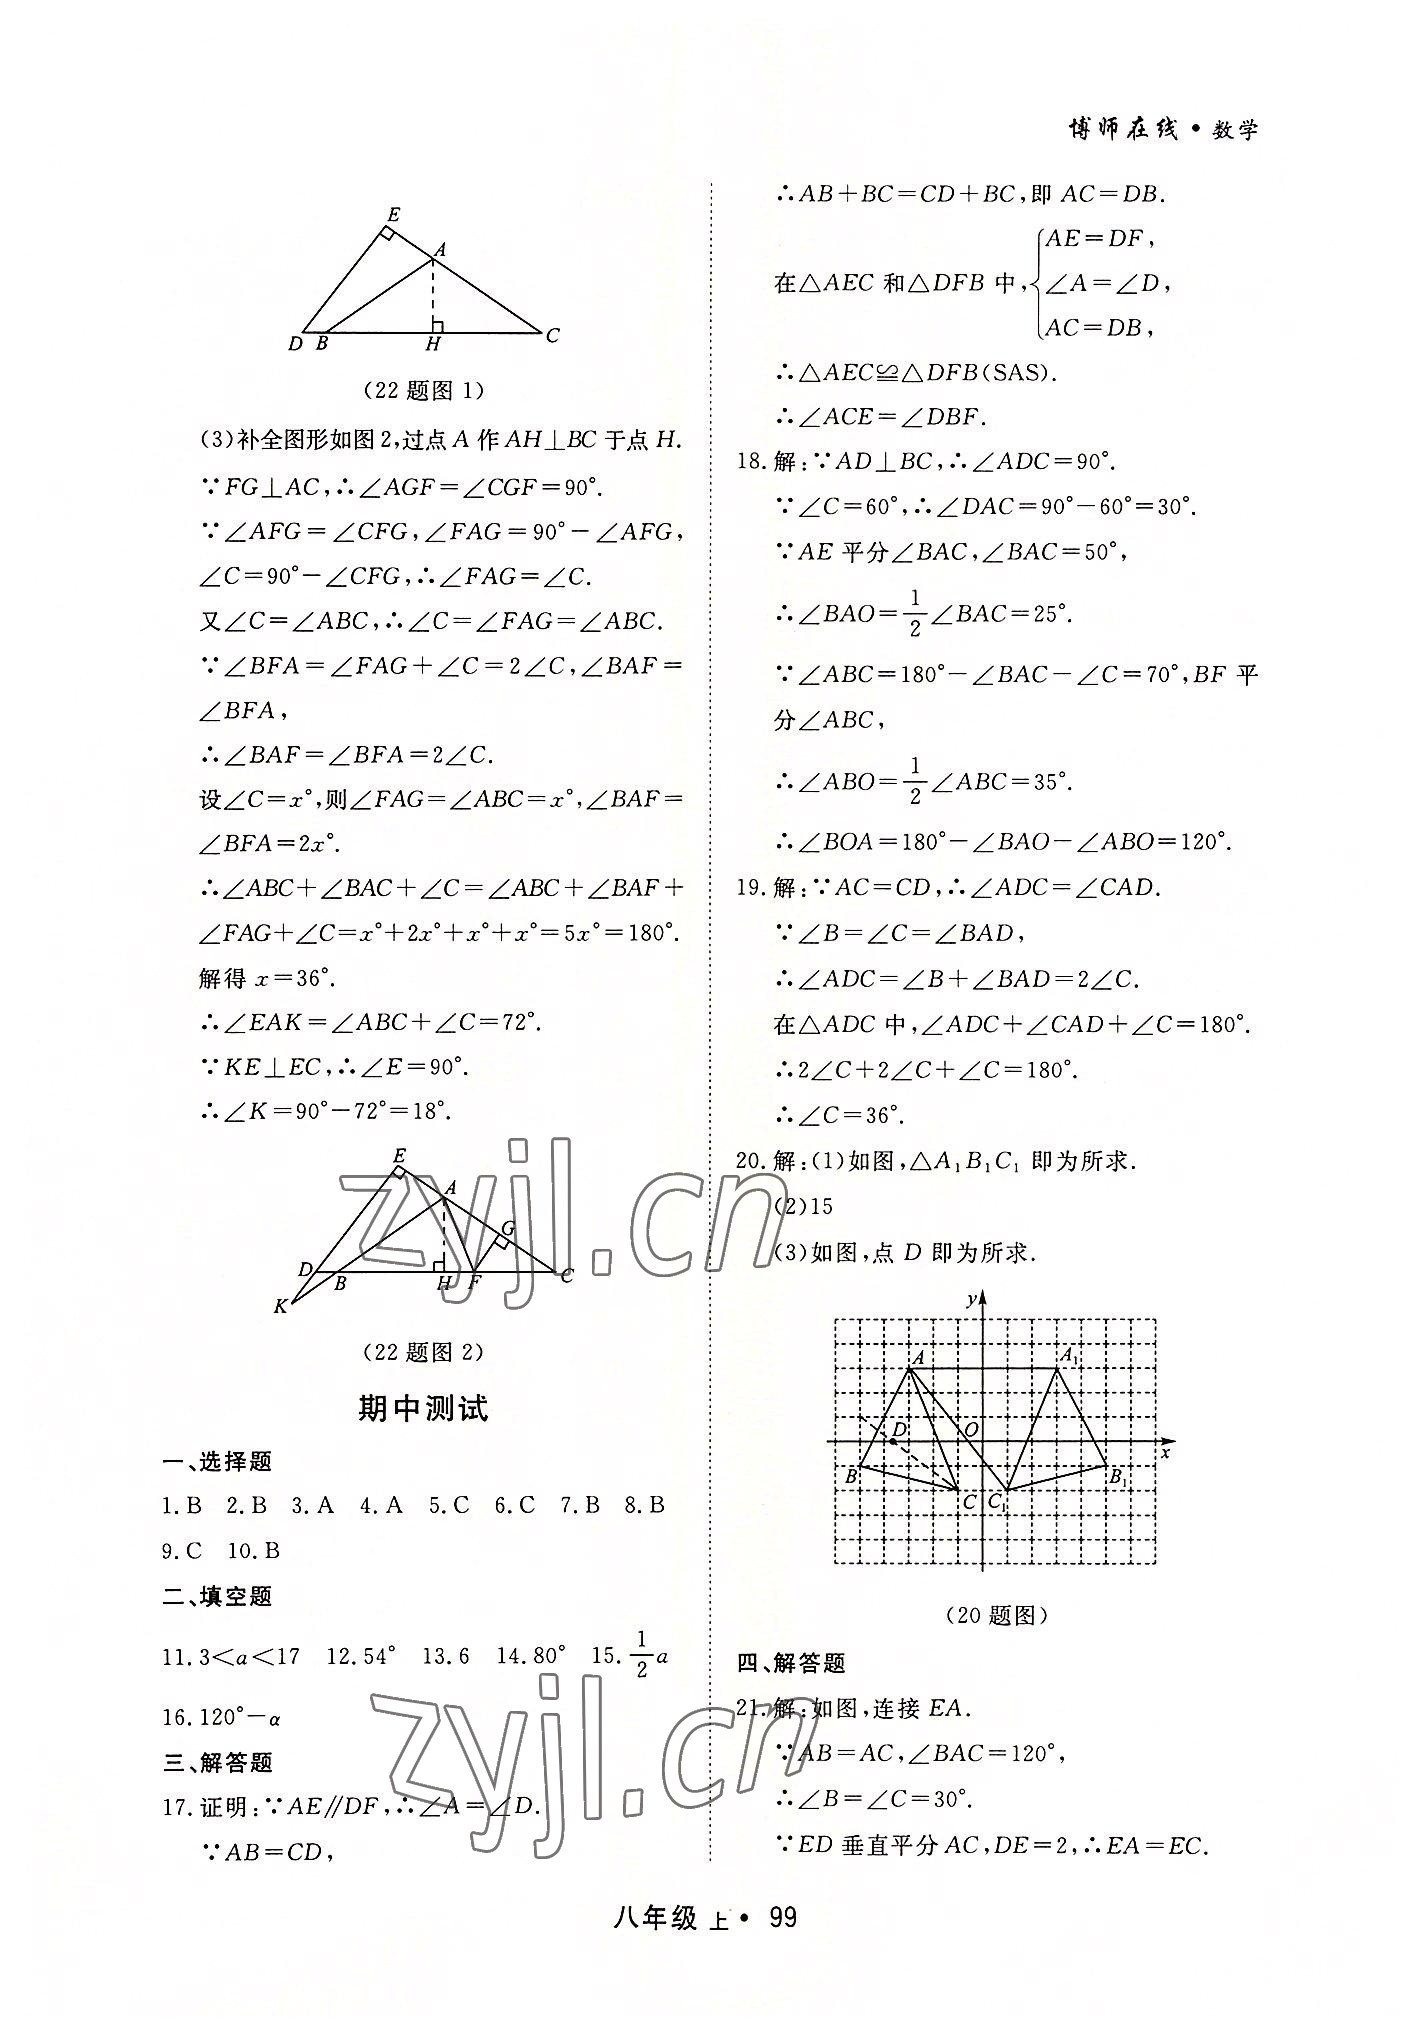 博师在线·数学
E
A
D B H C
(22题图1)
(3)补全图形如图2,过点A作AH⊥BC于点H.
∵FG⊥AC,∴∠AGF=∠CGF=90°.
∵∠AFG=∠CFG,∠FAG=90°-∠AFG,
∠C=90°-∠CFG,∴∠FAG=∠C.
又∠C=∠ABC,∴∠C=∠FAG=∠ABC.
∵∠BFA=∠FAG+∠C=2∠C,∠BAF=
∠BFA,
∴∠BAF=∠BFA=2∠C.
设∠C=x°,则∠FAG=∠ABC=x°,∠BAF=
∠BFA=2x°.
∴∠ABC+∠BAC+∠C=∠ABC+∠BAF+
∠FAG+∠C=x°+2x°+x°+x°=5x°=180°.
解得x=36°.
∴∠EAK=∠ABC+∠C=72°.
∵KE⊥EC,∴∠E=90°.
∴∠K=90°-72°=18°.
E
A
G
D B H F C
K
(22题图2)
期中测试
一、选择题
1.B 2.B 3.A 4.A 5.C 6.C 7.B 8.B
9.C 10.B
二、填空题
11.3<a<17 12.54° 13.6 14.80° 15.1/2a
16.120°-α
三、解答题
17.证明:∵AE∥DF,∴∠A=∠D.
∵AB=CD,
∴AB+BC=CD+BC,即AC=DB.
AE=DF,
在△AEC和△DFB中,{∠A=∠D,
AC=DB,
∴△AEC≌△DFB(SAS).
∴∠ACE=∠DBF.
18.解:∵AD⊥BC,∴∠ADC=90°.
∵∠C=60°,∴∠DAC=90°-60°=30°.
∵AE平分∠BAC,∠BAC=50°,
∴∠BAO=1/2∠BAC=25°.
∵∠ABC=180°-∠BAC-∠C=70°,BF平
分∠ABC,
∴∠ABO=1/2∠ABC=35°.
∴∠BOA=180°-∠BAO-∠ABO=120°.
19.解:∵AC=CD,∴∠ADC=∠CAD.
∵∠B=∠C=∠BAD,
∴∠ADC=∠B+∠BAD=2∠C.
在△ADC中,∠ADC+∠CAD+∠C=180°.
∴2∠C+2∠C+∠C=180°.
∴∠C=36°.
20.解:(1)如图,△A₁B₁C₁即为所求.
(2)15
(3)如图,点D即为所求.
y
A A₁
D O x
B B₁
C C₁
(20题图)
四、解答题
21.解:如图,连接EA.
∵AB=AC,∠BAC=120°,
∴∠B=∠C=30°.
∵ED垂直平分AC,DE=2,∴EA=EC.
八年级 上·99
zyjl.cn
zyjl.cn